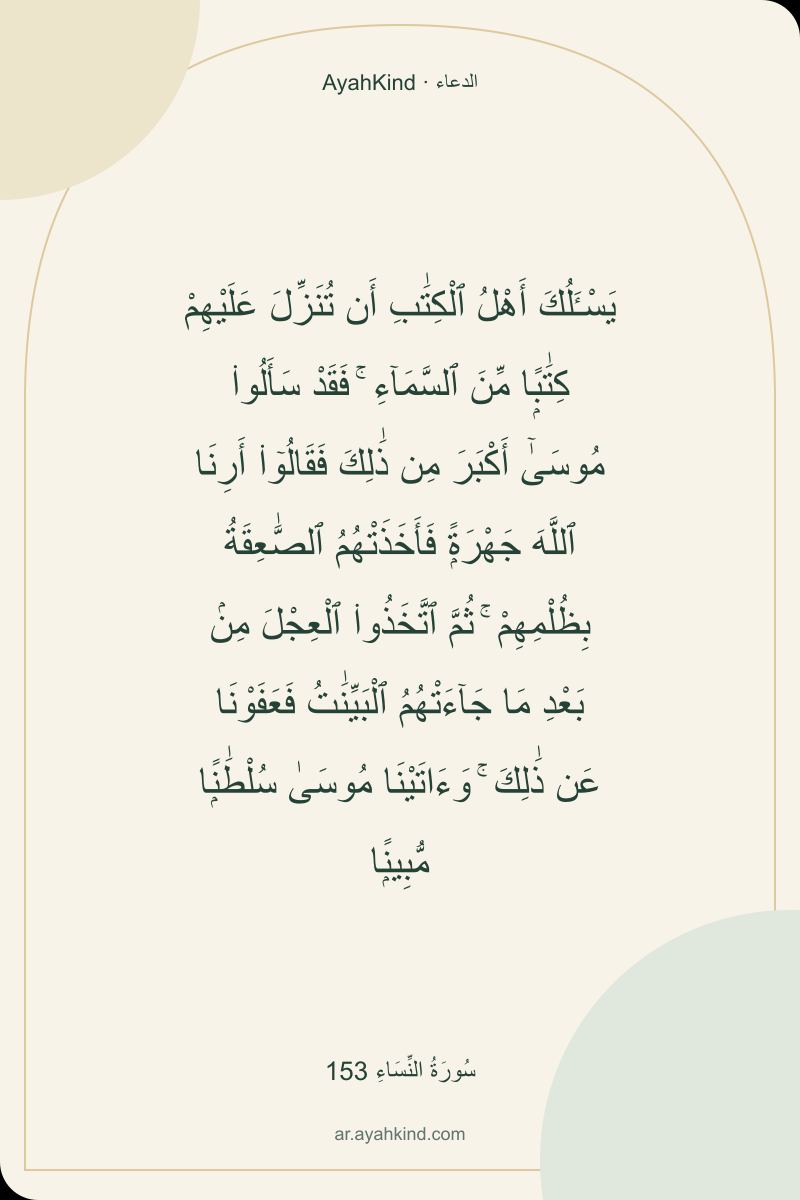 AyahKind · الدعاء
يَسْـَٔلُكَ أَهْلُ ٱلْكِتَٰبِ أَن تُنَزِّلَ عَلَيْهِمْ
كِتَٰبًۭا مِّنَ ٱلسَّمَآءِ ۚ فَقَدْ سَأَلُوا۟
مُوسَىٰٓ أَكْبَرَ مِن ذَٰلِكَ فَقَالُوٓا۟ أَرِنَا
ٱللَّهَ جَهْرَةًۭ فَأَخَذَتْهُمُ ٱلصَّٰعِقَةُ
بِظُلْمِهِمْ ۚ ثُمَّ ٱتَّخَذُوا۟ ٱلْعِجْلَ مِنۢ
بَعْدِ مَا جَآءَتْهُمُ ٱلْبَيِّنَٰتُ فَعَفَوْنَا
عَن ذَٰلِكَ ۚ وَءَاتَيْنَا مُوسَىٰ سُلْطَٰنًۭا
مُّبِينًۭا
سُورَةُ النِّسَاءِ 153
ar.ayahkind.com